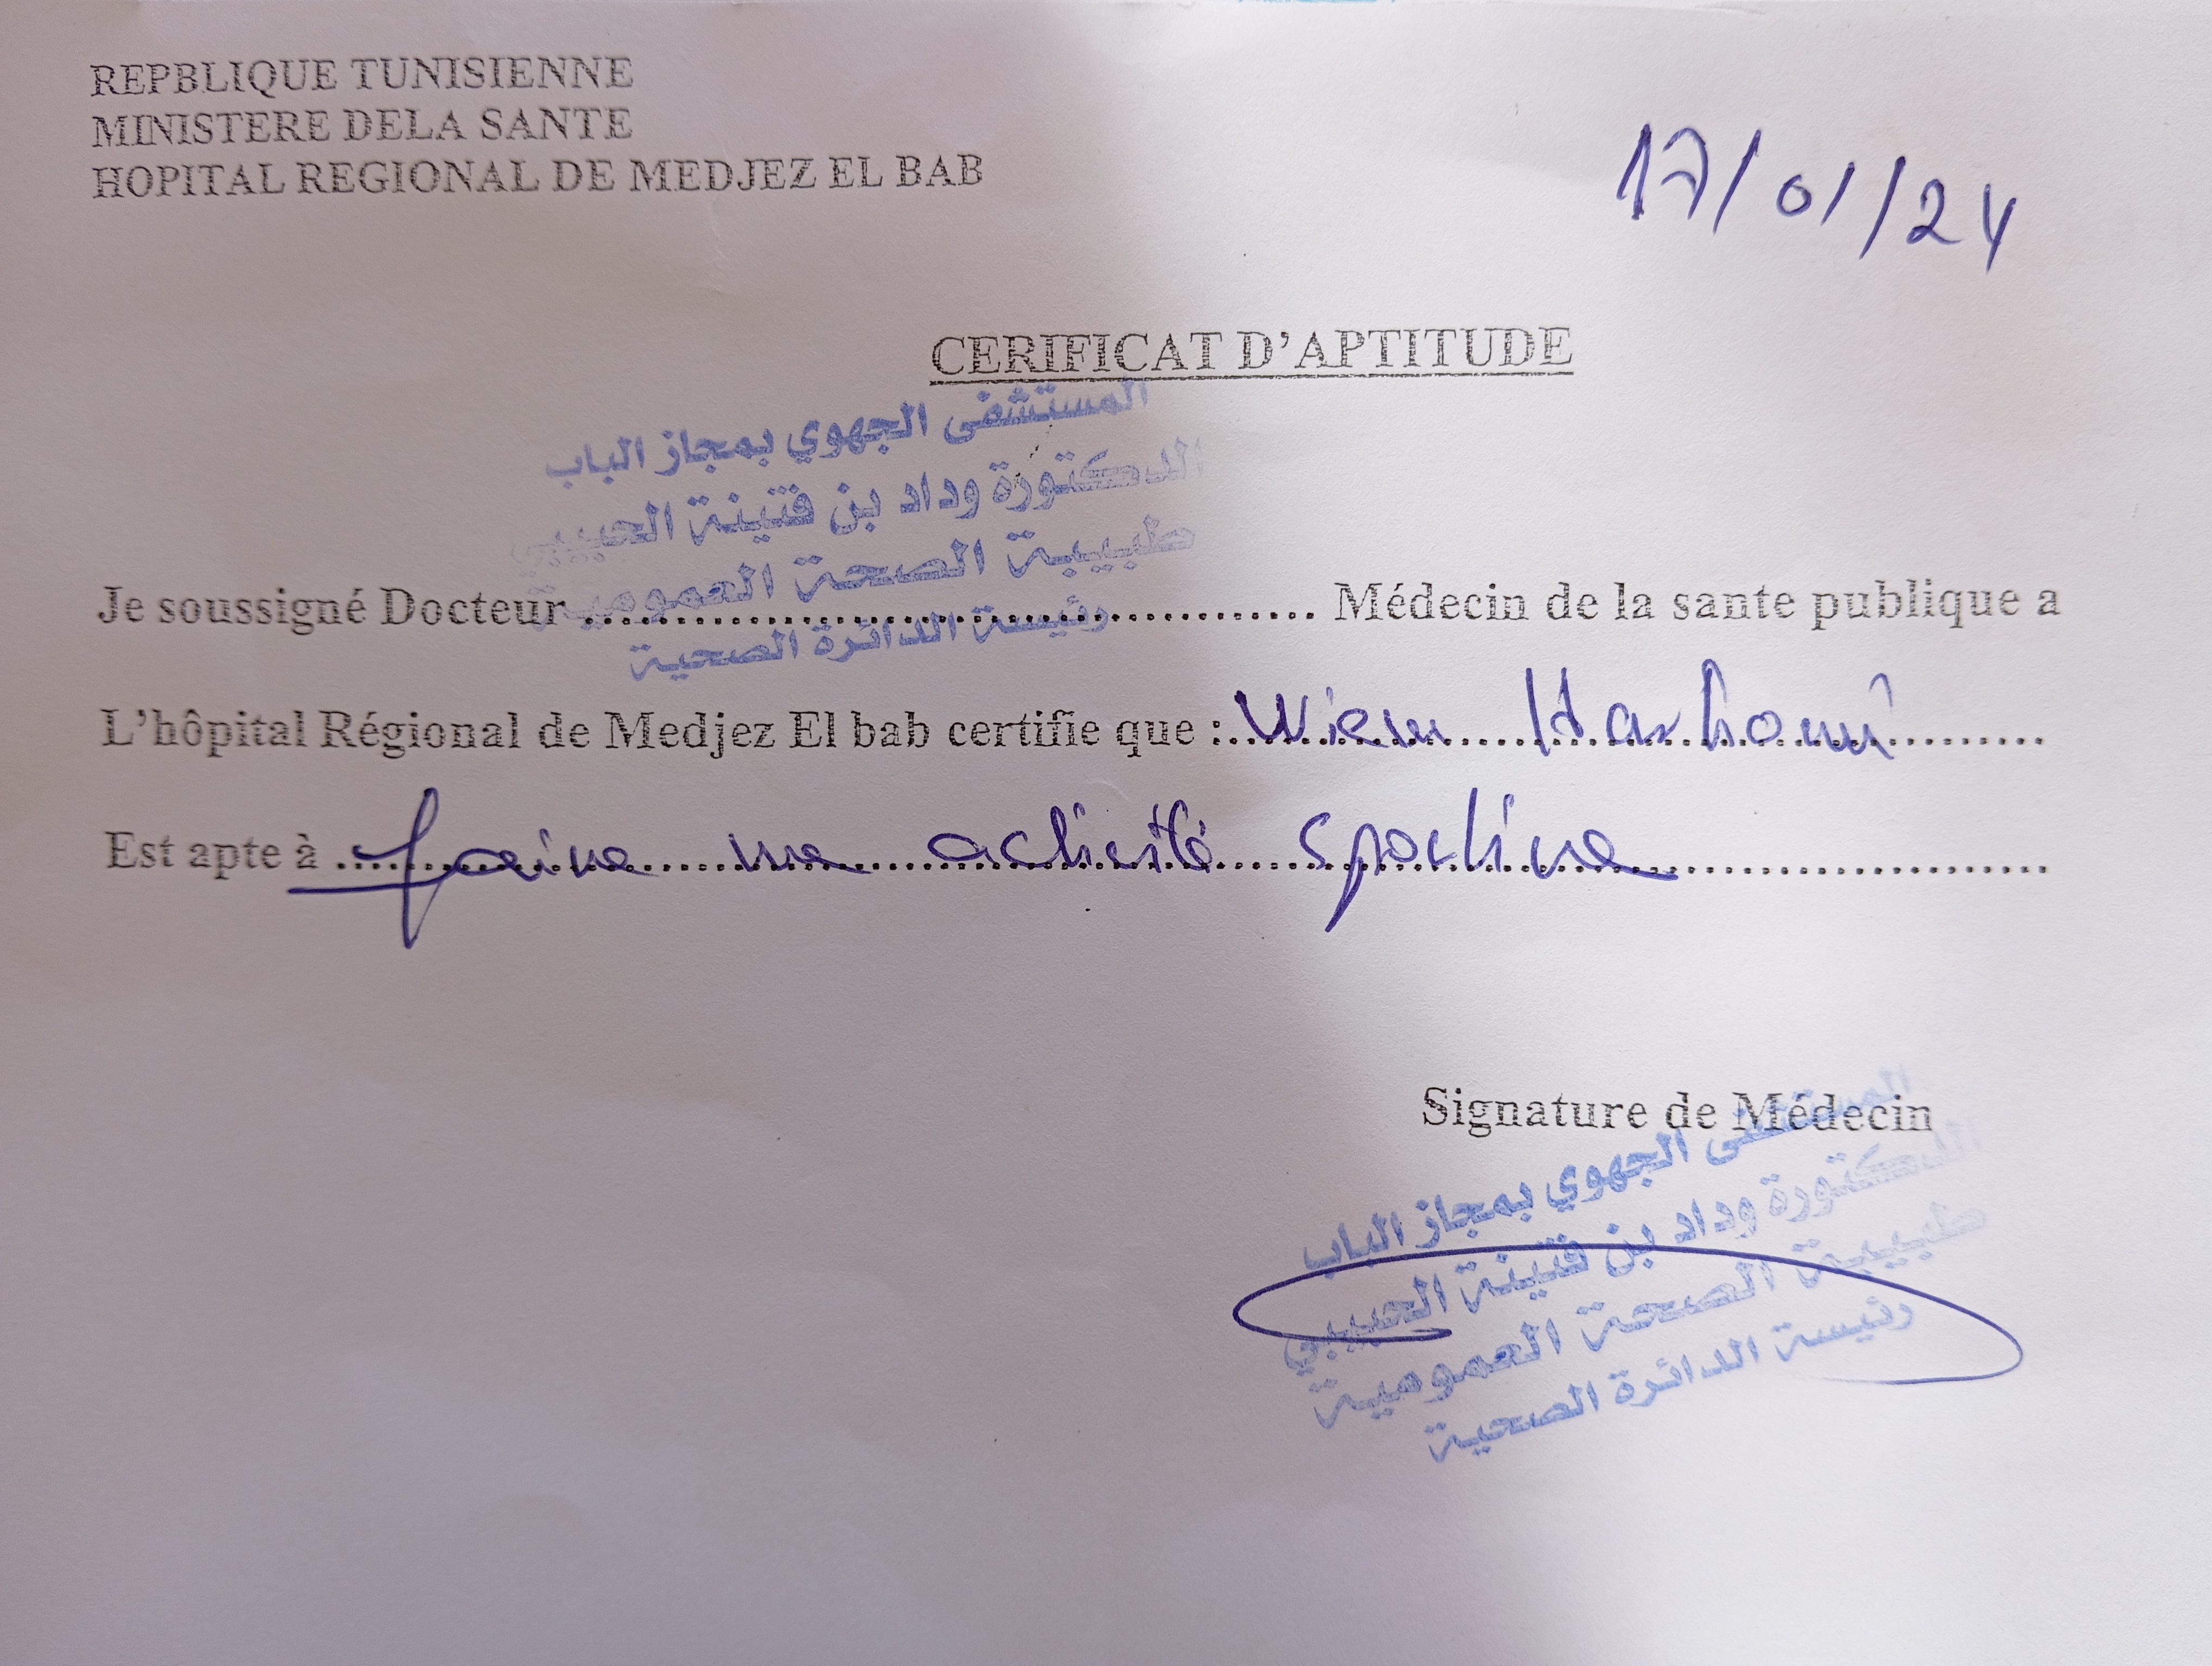 REPBLIQUE TUNISIENNE
MINISTERE DELA SANTE
HOPITAL REGIONAL DE MEDJEZ EL BAB
17/01/24
CERIFICAT D'APTITUDE
المستشفى الجهوي بمجاز الباب
الدكتورة وداد بن فتينة الحبيبي
طبيبة الصحة العمومية
رئيسة الدائرة الصحية
Je soussigné Docteur .................................... Médecin de la sante publique a
L'hôpital Régional de Medjez El bab certifie que : Wiem
Est apte à faire une activité sportive
Signature de Médecin
المستشفى الجهوي بمجاز الباب
الدكتورة وداد بن فتينة الحبيبي
طبيبة الصحة العمومية
رئيسة الدائرة الصحية